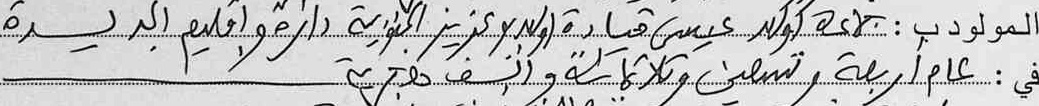 المولود ب: جماعة أولاد عيسى قيادة أولاد بوعزيز الجنوبية دائرة وإقليم الجديدة
في: عام أربعة وتسعين وثلاثمائة وألف هجرية